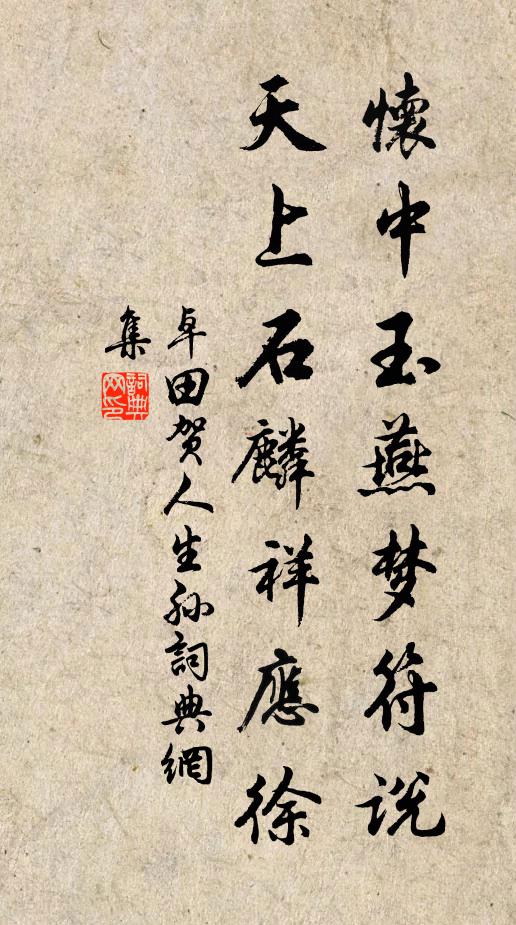 懷中玉燕梦符说
天上石麟祥應徐
卓田贺人生孙詞典網
集
詞典网印